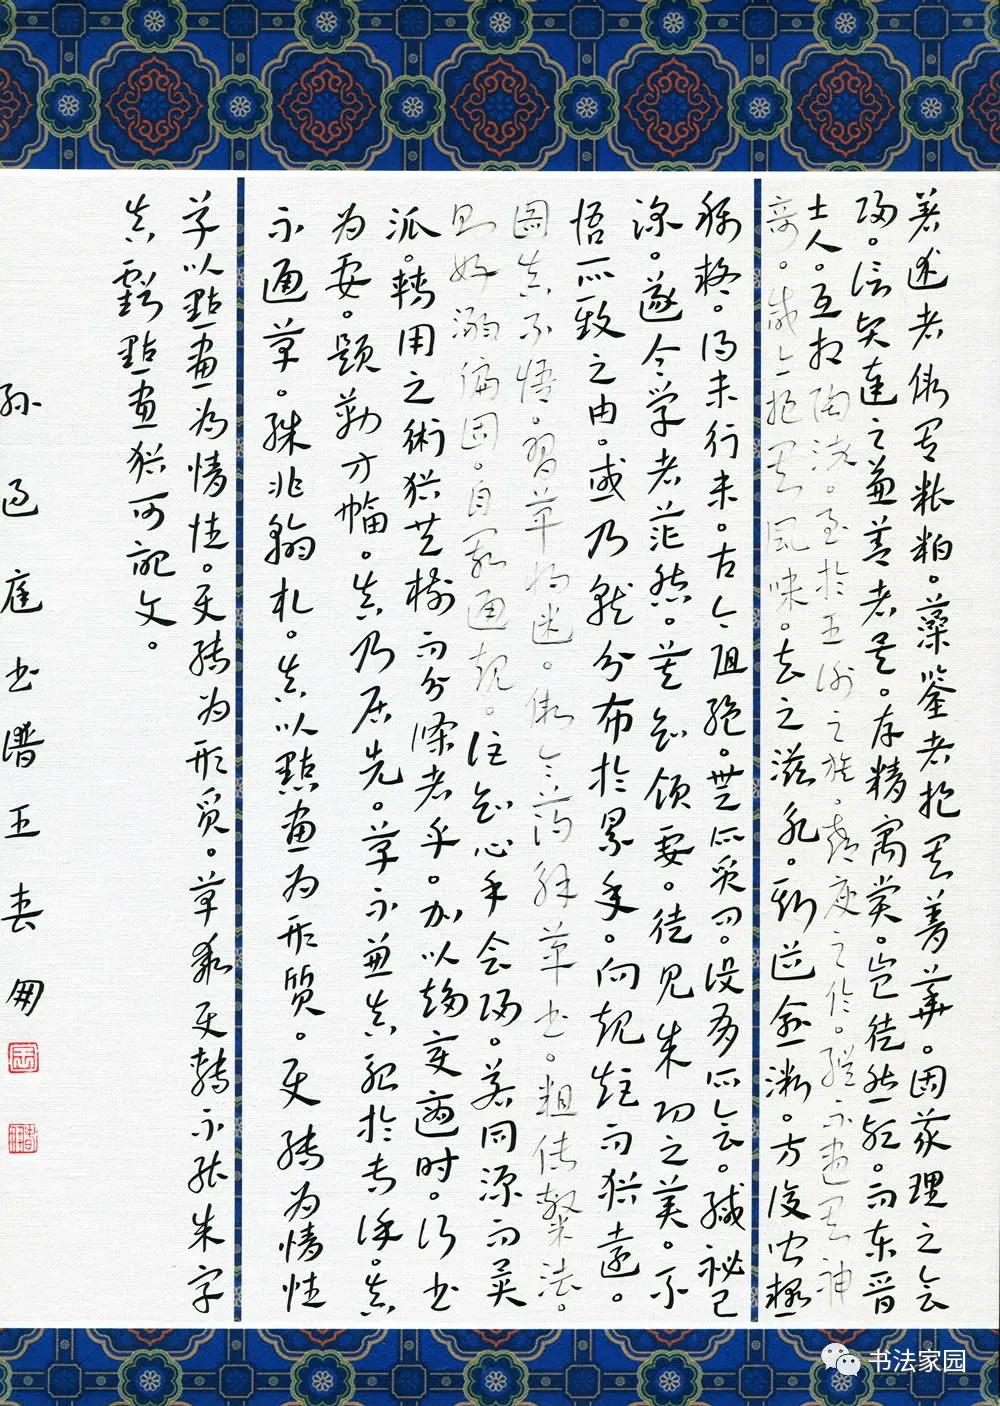 著述者假其糟粕。藻鉴者挹其菁華。固義理之会
归。信賢達之兼善者矣。存精寓赏。岂徒然欤。而东晋
士人。互相陶淬。至於王谢之族。郗庾之伦。縱不盡其神
奇。咸亦挹其風味。去之滋永。斯道愈微。方復闻疑
稱疑。得末行末。古今阻绝。無所质问。设有所会。缄秘已
深。遂令学者茫然。莫知领要。徒见成功之美。不
悟所致之由。或乃就分布於累年。向规矩而猶遠。
圖真不悟。習草将迷。假令薄解草书。粗传隸法。
则好溺偏固。自阂通规。讵知心手会归。若同源而異
派。轉用之術猶共树而分條者乎。加以趨变適时。行书
为要。题勒方幅。真乃居先。草不兼真。殆於专谨。真
不通草。殊非翰札。真以點畫为形質。使转为情性
草以點畫為情性。使转为形质。草乖使轉不能成字
真虧點畫猶可記文。
孙过庭书谱王春䎖
书法家园